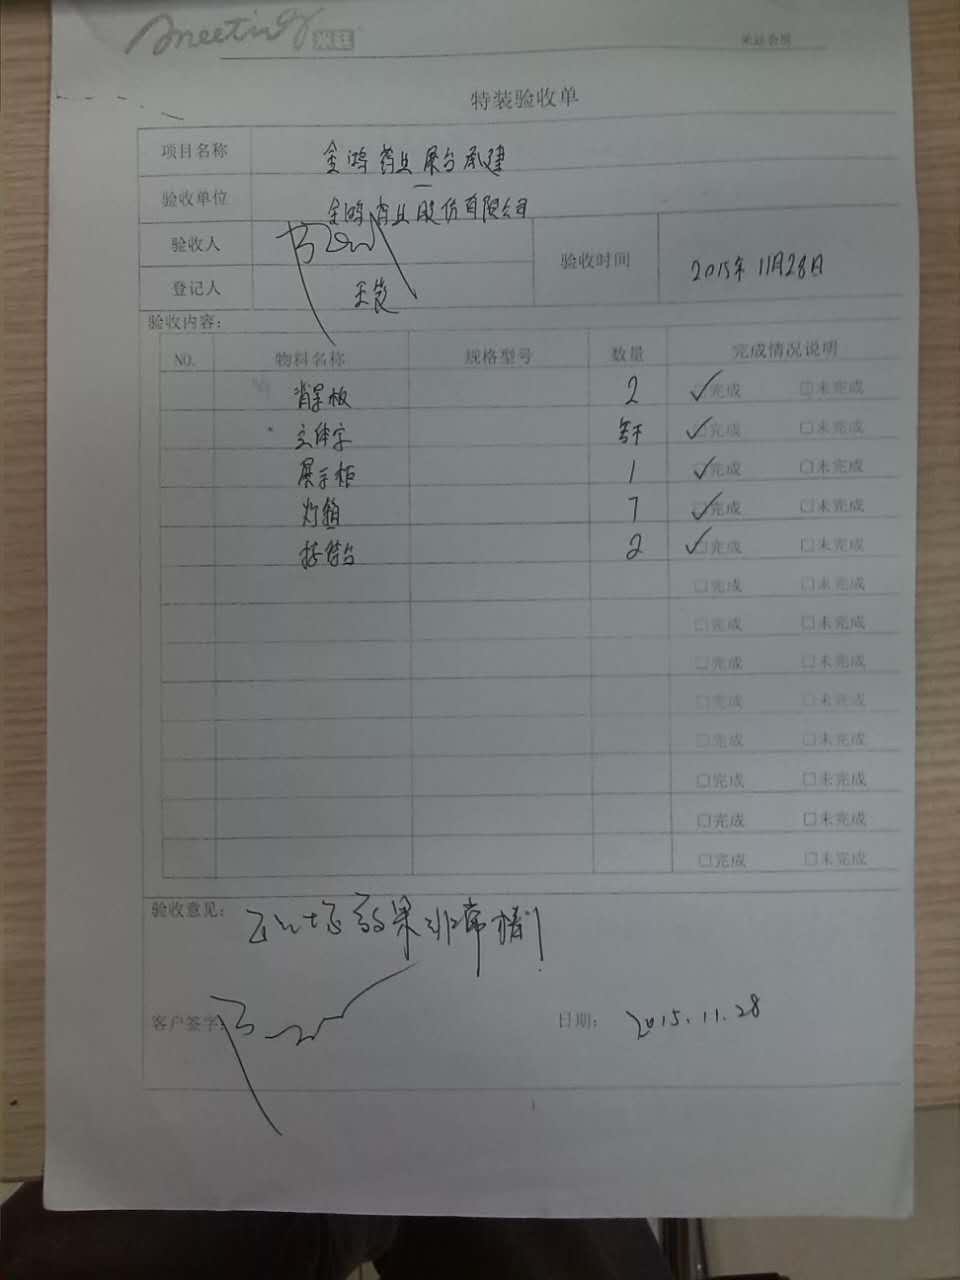 meeting 米廷
特装验收单
项目名称 金鸿药业展台承建
验收单位 金鸿药业股份有限公司
验收人
验收时间 2015年11月28日
登记人
验收内容：
NO. 物料名称 规格型号 数量 完成情况说明
背景板 2 ☑完成 □未完成
立体字 若干 ☑完成 □未完成
展示柜 1 ☑完成 □未完成
灯箱 7 ☑完成 □未完成
接待台 2 ☑完成 □未完成
□完成 □未完成
□完成 □未完成
□完成 □未完成
□完成 □未完成
□完成 □未完成
□完成 □未完成
□完成 □未完成
□完成 □未完成
验收意见： 现场效果非常棒！
客户签字： 日期： 2015.11.28
1